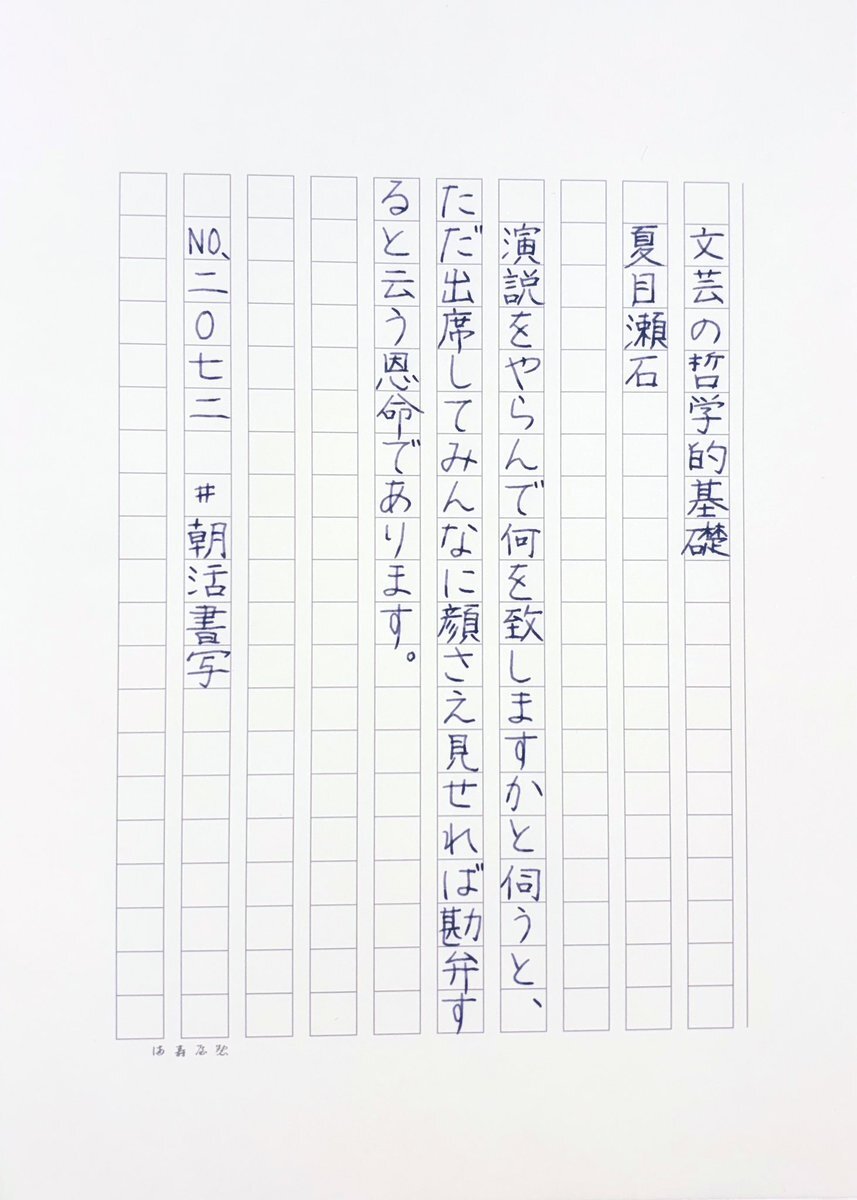 文芸の哲学的基礎
夏目瀬石
演説をやらんで何を致しますかと伺うと、
ただ出席してみんなに顔さえ見せれば勘弁す
ると云う恩命であります。
NO、二〇七二 #朝活書写